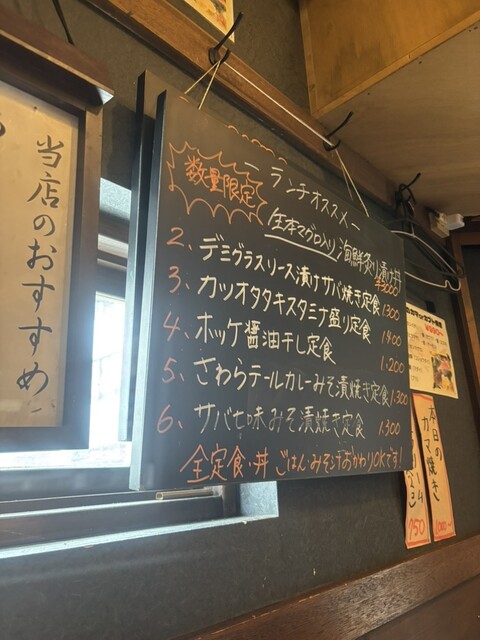 当店のおすすめ
ーランチオススメー
数量限定
生本マグロ入り海鮮炙り漬け丼
2、デミグラスソース漬けサバ焼き定食 1300
3、カツオタタキスタミナ盛り定食 1400
4、ホッケ醤油干し定食 1.200
5、さわらテールカレーみそ漬焼き定食 1.300
6、サバ七味みそ漬焼き定食 1.300
全定食・丼 ごはん・みそ汁おかわりOKです!
本日の
カマ焼き
1000ー
750